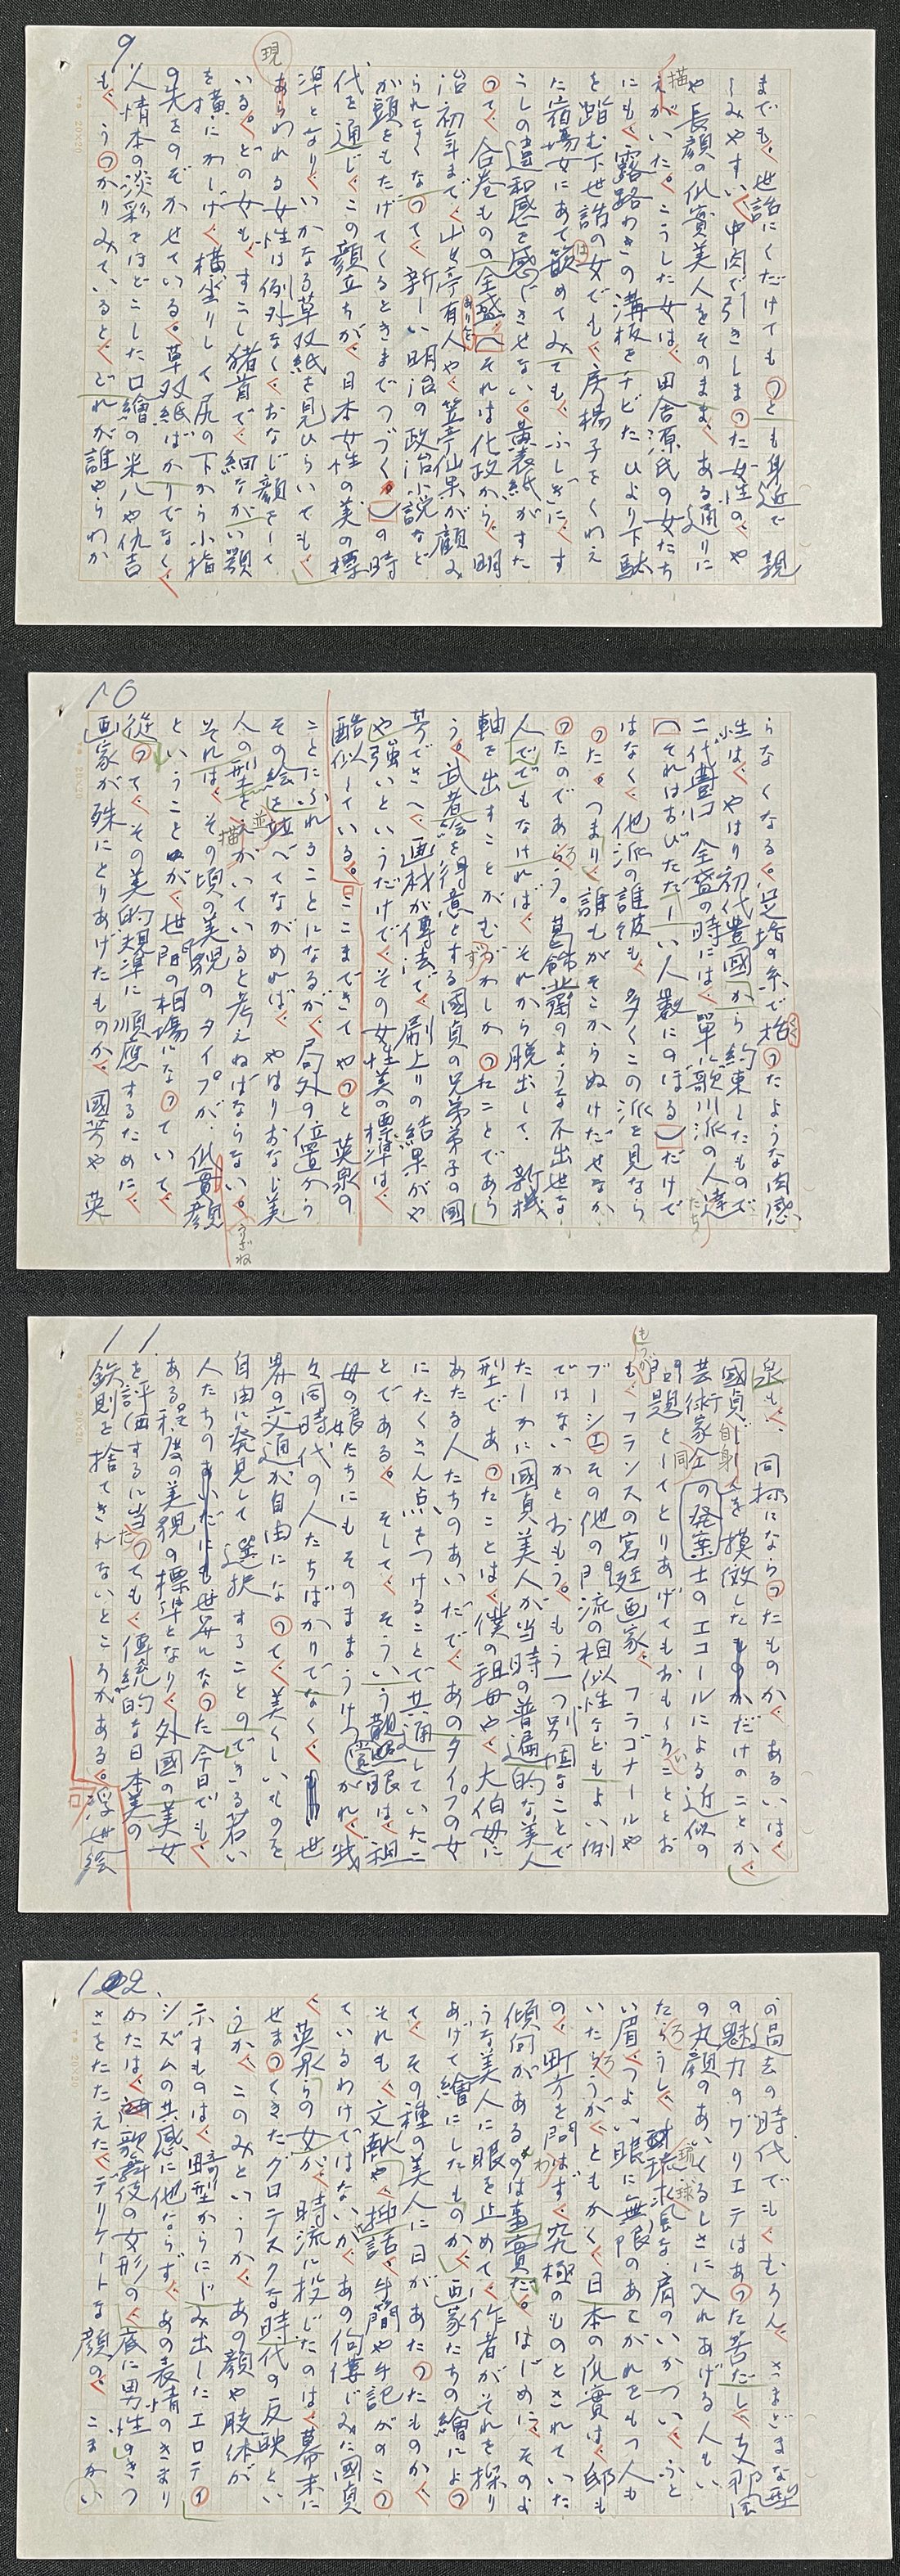 9
までも、世話にくだけても、つとも身近で親
しみやすい、中肉で引きしまつた女性の、や
や長顔の似實美人をそのまま、ある通りに
描
えがいた。こうした女は、田舎源氏の女たち
にも、露路わきの溝板をチビたひより下駄
を踏む下世話の女でも、房楊子をくわえ
は
た嶺場女にあて嵌めてみても、ふしぎに、す
こしの違和感を感じさせない。黄表紙がすた
つて、合巻ものの全盛(それは化政から、明
治初年まで、山々亭有人や、笠亭仙果が顧み
ありんど
られなくなつて、新しい明治の政治小説など
が頭をもたげてくるときまでつづく。)の時
代を通じ、この顔立ちが、日本女性の美の標
準となり、いかなる草双紙を見ひらいても、
現
あらわれる女性は例外なく、おなじ顔をして
いる。どの女も、すこし猪首で、細ながい顎
を横にかしげ、横坐りして尻の下から小指
の先をのぞかせている。草双紙ばかりでなく、
人情本の淡彩をほどこした口繪の米八や仇吉
も、うつかりみていると、どれが誰やらわか
10
らなくなる。足袋の糸で括つたような肉感
性は、やはり初代豊國から約束したもので
二代豊国全盛の時には、單に歌川派の人達
たち
(それはおびただしい人数にのぼる)だけで
はなく、他派の誰彼も、多くこの派を見なら
つた。つまり、誰もがそこからぬけだせなか
つたのであろう。葛飾北齋のような不出世な
人ででもなければ、それから脱出して、新機
軸を出すことがむずかしかつたことであろ
う。武者絵を得意とする國貞の兄弟弟子の國
芳でさへ、画材が傳法で、刷上りの結果がや
や強いというだけで、その女性美の標準は、
酷似している。ここまできてやつと英泉の
ことにふれることになるが、局外の位置から
その絵を並べてながめれば、やはりおなじ美
並
人の型をえがいていると考えねばならない。
描
それは、その頃の美貌のタイプが、似實顔
うざね
ということが、世間の相場になつていて、
從つて、その美的規準に順應するために、
画家が殊にとりあげたものか、國芳や英
11
泉も、同極にならつたものか、あるいは、
國貞自身を摸倣しただけのことか、
芸術家全の発案士のエコールによる近似の
同
問題としてとりあげてもおもしろいこととお
もつが
も、フランスの宮廷画家、フラゴナールや
ブーシエその他の門流の相似性などもよい例
ではないかとおもう。もう一つ別個なことで
たしかに國貞美人が当時の普遍的な美人
型であつたことは、僕の祖母や、大伯母に
あたる人たちのあいだで、あのタイプの女
にたくさん点をつけることで共通していたこ
とである。そして、そういう観賞眼は、祖
母の娘たちにもそのままうけつがれ、我
々同時代の人たちばかりでなく、世
界の交通が自由になつて、美くしいものを
自由に発見して選択することのできる若い
人たちの世界になつた今日でも、
ある程度の美貌の標準となり、外國の美女
を評価するに当つても、傳統的な日本美の
鉄則を捨てきれないところがある。浮世絵
12
の過去の時代でも、むろん、さまざまな型
の魅力のヴリエテはあつた筈だし、支那風
の丸顔のあいくるしさに入れあげる人もい
たろうし、琉球風な肩のいかつい、ふと
琉球
い眉、つよい眼に無限のあこがれをもつ人も
いたろうが、ともかく、日本の似實は、邸も
の、町方を問はず、究極のものとされていた
わ
傾向があるのは事實だ。はじめに、そのよ
うな美人に眼を止めて、作者がそれを採り
あげて繪にしたものか、画家たちの繪によつ
て、その種の美人に日があたつたものか、
それも、文献や、挿話、手簡や手記がのこつ
ているわけではないが、あの何傳じみた國貞
、英泉らの女が、時流に投じたのは、幕末に
せまつてきたグロテスクな時代の反映とい
うか、このみというか、あの顔や肢体が
示すものは、畸型からにじみ出したエロテイ
シズムの共感に他ならず、あの表情のきまり
かたは、歌舞伎の女形の、底に男性のきつ
さをたたえた、デリケートな顔の、こまかい